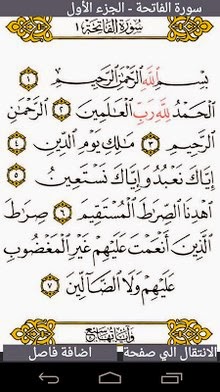 سورة الفاتحة - الجزء الأول
سُورَةُ الفَاتِحَةِ ١
بِسْمِ اللَّهِ الرَّحْمَٰنِ الرَّحِيمِ ١
الْحَمْدُ لِلَّهِ رَبِّ الْعَالَمِينَ ٢ الرَّحْمَٰنِ
الرَّحِيمِ ٣ مَالِكِ يَوْمِ الدِّينِ ٤
إِيَّاكَ نَعْبُدُ وَإِيَّاكَ نَسْتَعِينُ ٥
اهْدِنَا الصِّرَاطَ الْمُسْتَقِيمَ ٦ صِرَاطَ
الَّذِينَ أَنْعَمْتَ عَلَيْهِمْ غَيْرِ الْمَغْضُوبِ
عَلَيْهِمْ وَلَا الضَّالِّينَ ٧
الانتقال الي صفحة
اضافة فاصل